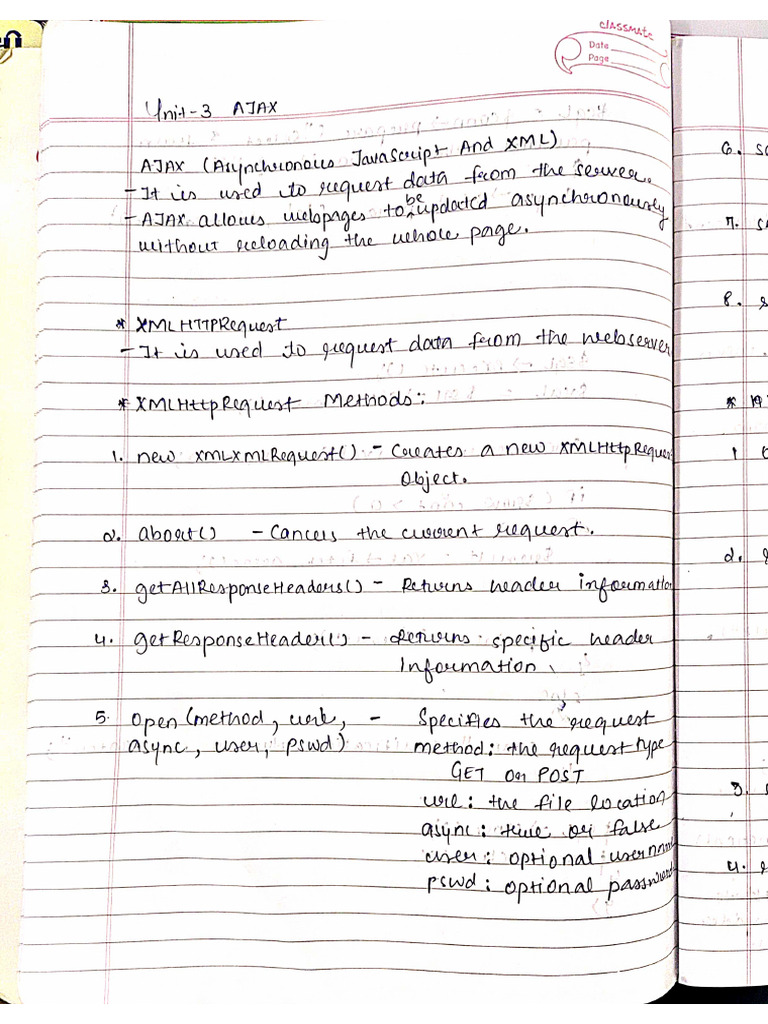 classmate
Date
Page
Unit-3 AJAX
AJAX (Asynchronous JavaScript And XML)
- It is used to request data from the server.
- AJAX allows webpages to be updated asynchronously
without reloading the whole page.
* XMLHTTPRequest
- It is used to request data from the webserver
* XMLHttpRequest Methods:
1. new XMLXMLRequest() - Creates a new XMLHttpReques
Object.
2. abort() - Cancels the current request.
3. getAllResponseHeaders() - Returns header information
4. getResponseHeader() - Returns specific header
Information
5. open(method, url, - Specifies the request
async, user, pswd) method: the request type
GET or POST
url: the file location
async: true or false
user: optional username
pswd: optional password
6.
7.
8.
*
1
2.
3.
4.